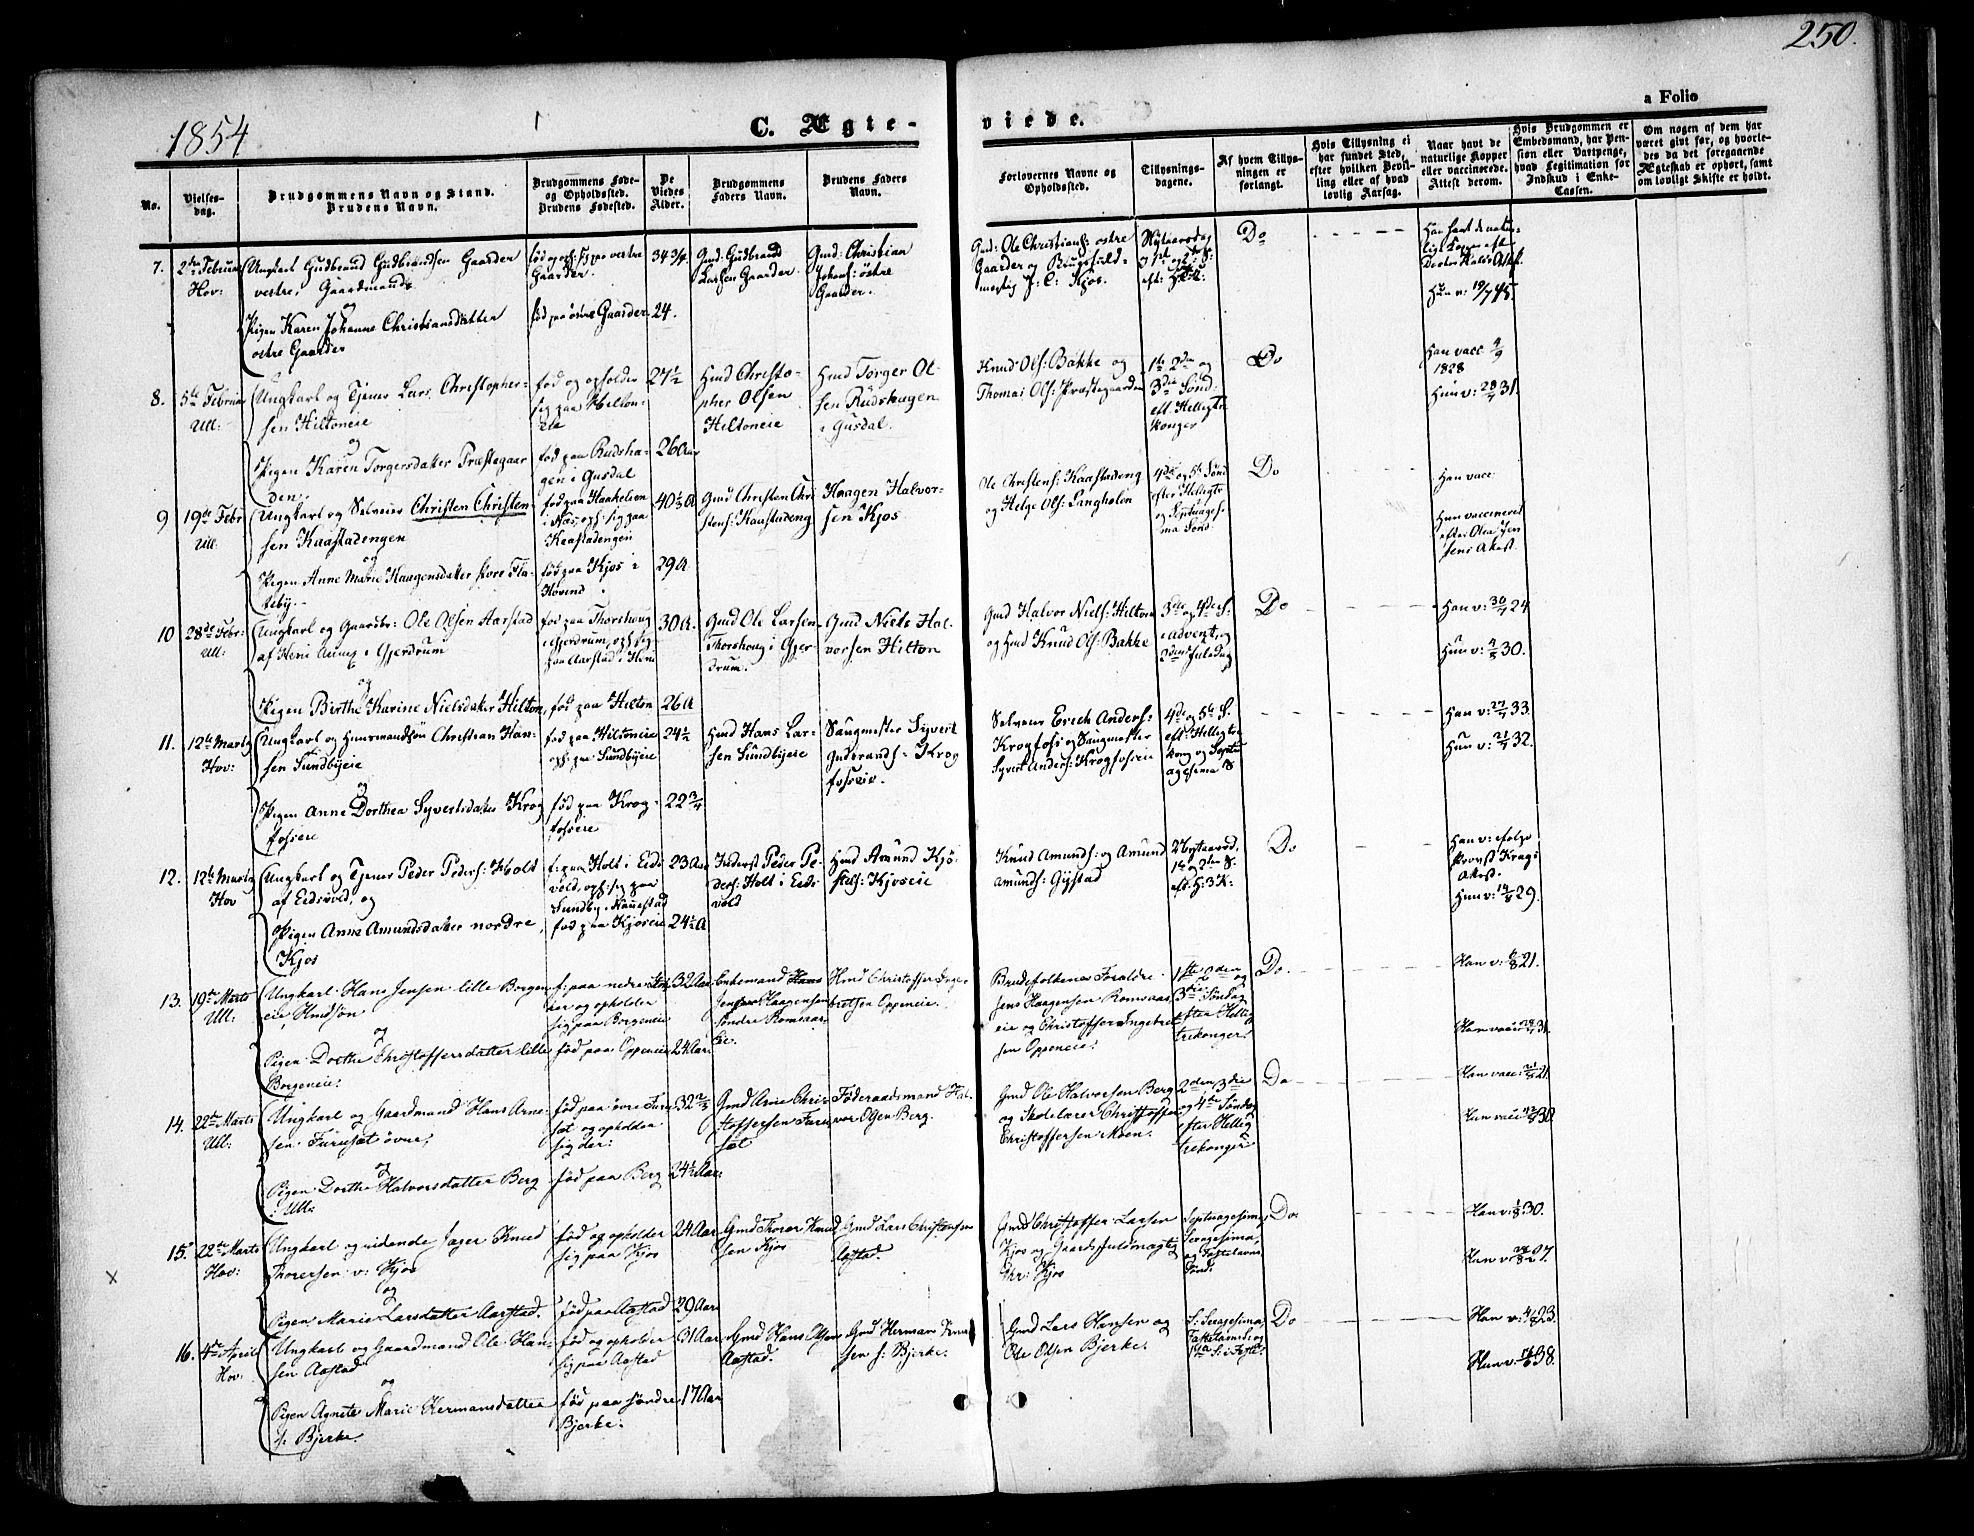 250.
a Folio
1854
C. Ægte-
viede.
No.
Vielses-
dag.
Brudgommens Navn og Stand.
Brudens Navn.
Brudgommens Føde-
og Opholdssted.
Brudens Fødested.
De
Viedes
Alder.
Brudgommens
Faders Navn.
Brudens Faders
Navn.
Forlovernes Navne og
Opholdssted.
Tillysnings-
dagene.
Af hvem Tillys-
ningen er
forlangt.
Hvis Tillysning ei
har fundet Sted,
efter hvilken Bevil-
ling eller af hvad
lovlig Aarsag.
Naar havt de
naturlige Kopper
eller vaccinerede.
Attest derom.
Hvis Brudgommen er
Embedsmand, har Pen-
sion eller Vartpenge,
hvad Legitimation for
Indskud i Enke-
Cassen.
Om nogen af dem har
været gift før, og hvorle-
des da det foregaaende
Ægteskab er ophørt, samt
om lovligt Skifte er holdt.
7.
Hov:
Ungkarl Gudbrand Gudbrandsen Gaarder
vestre, Gaardmand
og
Pigen Karen Johanne Christiansdatter
østre Gaarder
Gaarder.
fød paa østre Gaarder
34 3/4
24.
Gmd: Gudbrand
Larsen Gaarder
Gmd: Christian
Johans: østre
Gaarder.
Gmd: Ole Christians: østre
Do
Hun v: 19/7 45.
8.
5te Februar
Ull:
Ungkarl og Tjener Lars Christopher-
sen Hiltoneie
og
Pigen Karen Torgersdatter Præstegaar
den.
fød og opholder
sig paa Hilton-
eie
fød paa Rudsha-
gen i Gusdal
27 1/2
26 Aar
Hmd Christo-
pher Olsen
Hiltoneie
Hmd Torger Ol-
sen Rudshagen
i Gusdal.
Knud Ols: Bakke og
Thomas Ols: Præstegaarden
1te 2den og
3die Sønd:
eft Helligtre
konger
Do
Han vacc 4/9
1828
Hun v: 28/7 31.
9
19de Febr
Ull:
Ungkarl og Selveier Christen Christen-
sen Kaastadengen
og
Pigen Anne Marie Haagensdatter store Fla-
teby.
i Næs, oph: sig paa
Kaastadengen
fød paa Kjos i
Høvind
40 1/2 A
29 A
Gmd Christen Chri
stens: Kaastadeng
Haagen Halvor-
sen Kjos
Ole Christens: Kaastadeng
og Helge Ols: Langholen
4de og 5te Sønd
efter Helligtr
og Septuages-
ma Sønd.
Do
Han vacc
Hun vaccineret
10
28de Febr:
Ull:
Ungkarl og Gaardbr: Ole Olsen Aarstad
af Heni Annex i Gjerdrum
og
Pigen Birthe Karine Nielsdatter Hilton,
fød paa Thorshoug
i Gjerdrum, oph: sig
paa Aarstad i Heni
fød paa Hilton
30 A.
26 A
Gmd Ole Larsen
Thorshoug i Gjer-
drum.
Gmd Niels Hal-
vorsen Hilton
Gmd Halvor Niels: Hilton
og Hmd Knud Ols: Bakke
3die og 4de S:
i advent, og
2den Juledag
Do
Han v: 30/7 24
Hun v: 4/5 30.
11.
12te Marts
Hov:
Ungkarl og Huusmandssøn Christian Han-
sen Sundbyeie
og
Pigen Anne Dorthea Syvertsdatter Krog
fosseie
fød paa Hiltoneie
oph: paa Sundbyeie
fød paa Krog-
fosseie
24 1/2
22 3/4
Hmd Hans Lar-
sen Sundbyeie
Saugmester Syvert
Gudbrands: Krog
fosseie.
Selveier Erich Anders:
Krogfoss og Saugmester
Syvert Anders: Krogfosseie
4de og 5te S.
eft Helligtre
kong og Septu
agesima S
Han v: 27/7 33.
Hun v: 21/7 32.
12.
12te Marts
Hov
Ungkarl og Tjener Peder Peders: Holt
af Eidsvold, og
Pigen Anne Amundsdatter nordre
Kjos
f: paa Holt i Eids
vold, oph: sig paa
Sundby i Nannestad
fød paa Kjoseie
23 Aar
24 1/2 A
Inderst Peder Pe-
ders: Holt i Eids
vold
Hmd Amund Kjø-
stels: Kjoseie
Knud Amunds: og Amund
Amunds: Gystad
2 Nytaarsd.
1te og 2den S.
eft. H: 3 K:
Do
Han v: ifølge
Provst Krags
Attest.
Hun v: 14/8 29.
13.
19de Marts
Ull:
Ungkarl Hans Jensen lille Borgen
eie, Hmdsøn
og
Pigen Dorthe Christoffersdatter lille
Borgeneie.
der og opholder
sig paa Borgeneie
fød paa Oppeneie
32 Aar
24 Aar.
Enkemand Hans
Jens Haagensen
Søndre Romsaas
eie.
Hmd Christoffer Inge-
bretsen Oppeneie.
Brudefolkenes Forældre
Jens Haagensen Romsaas
eie og Christoffer Ingebret
sen Oppeneie.
1ste 2den og
3die Søndag
efter Hellig
trekonger.
Do.
14.
22de Marts
Ull:
Ungkarl og Gaardmand Hans Arne-
sen Furuset øvre,
og
Pigen Dorthe Halvorsdatter Berg
Ull:
fød paa øvre Furu
set og opholder
sig der:
fød paa Berg
32 2/3
24 1/2 Aar.
Gmd Arne Chri-
stoffersen Furu
set
Føderaadsmand Hal-
vor Olsen Berg.
Gmd Ole Halvorsen Berg
og Skolelærer Christoffer
Christoffersen Moen.
2den, 3die
og 4de Søndag
efter Hellig
trekonger
Do
15.
22de Marts
Hov:
x
Ungkarl og ridende Jæger Knud
Thorersen v: Kjos
og
Pigen Marie Larsdatter Aarstad.
fød og opholder
sig paa Kjos
fød paa Aastad
24 Aar
29 Aar
Gmd Thorer Knud
sen Kjos
Gmd Lars Christensen
Aastad.
Gmd Christoffer Larsen
Kjos og Gaardsfuldmægtig
Chr: Kjos
Septuagesima,
Sexagesima,
og Fastelavns
Sønd:
Do.
Han v: 1/8 30.
16.
4de April
Hov:
Ungkarl og Gaardmand Ole Han-
sen Aastad
og
Pigen Agnete Marie Hermansdatter
s. Bjerke.
fød og opholder
sig paa Aastad
fød paa søndre
Bjerke.
31 Aar
17 Aar
Gmd Hans Olsen
Aastad.
Gmd Herman Knud
sen s: Bjerke.
Gmd Lars Hansen og
Ole Olsen Bjerke.
S: Sexagesima,
Do